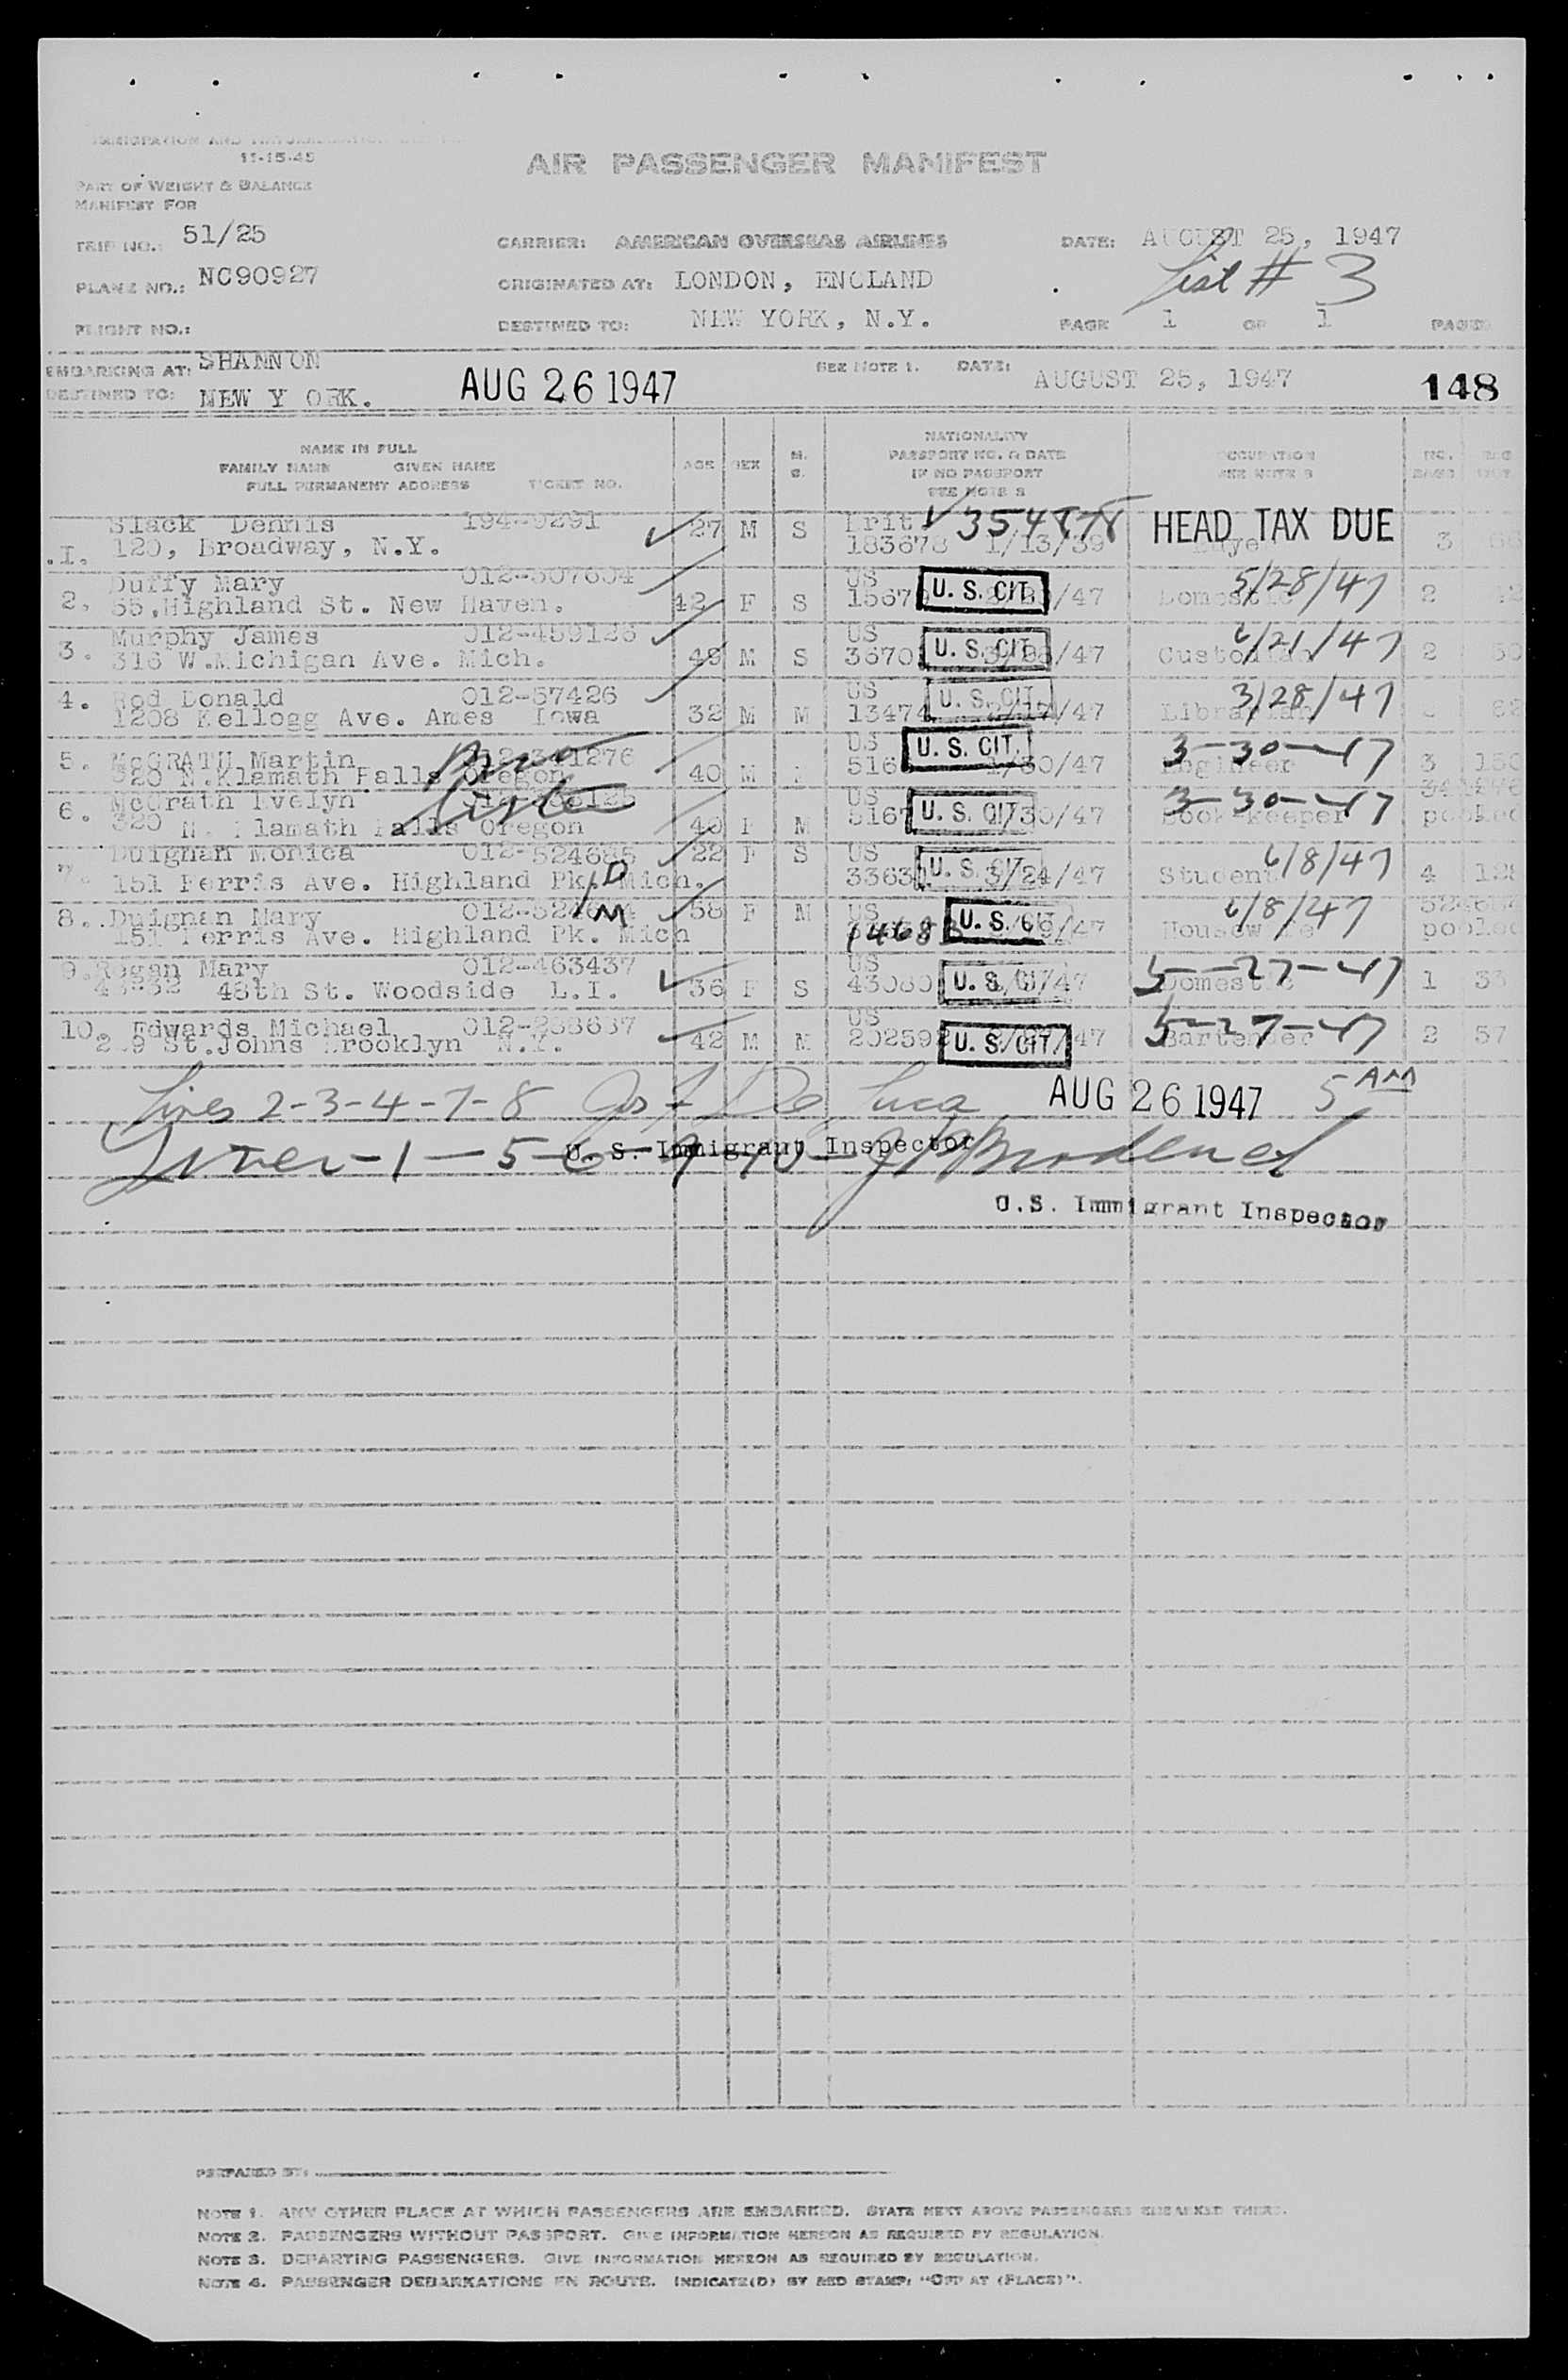 11-15-45
AIR PASSENGER MANIFEST
PART OF WEIGHT & BALANCE
MANIFEST FOR
TRIP NO.: 51/25
CARRIER: AMERICAN OVERSEAS AIRLINES
DATE: AUGUST 25, 1947
PLANE NO.: NC90927
ORIGINATED AT: LONDON, ENGLAND
List # 3
FLIGHT NO.:
DESTINED TO: NEW YORK, N.Y.
PAGE 1 OF 1 PAGES
EMBARKING AT: SHANNON
SEE NOTE 1. DATE: AUGUST 25, 1947
DESTINED TO: NEW Y ORK.
AUG 26 1947
148
NAME IN FULL
FAMILY NAME GIVEN NAME
FULL PERMANENT ADDRESS TICKET NO.
AGE SEX M. S.
NATIONALITY
PASSPORT NO. & DATE
IF NO PASSPORT
SEE NOTE 2
OCCUPATION
SEE NOTE 3
NO.
Slack Dennis 194-9291 27 M S Brit 354878 HEAD TAX DUE
.I. 120, Broadway, N.Y. 183678 1/13/39 3
Duffy Mary 012-507604 US U. S. CIT. 5/28/47
2. 55,Highland St. New Haven. 42 F S /47 2
Murphy James US U. S. CIT. 6/21/47
3. 316 W.Michigan Ave. Mich. 49 M S /47 Custodian 2
4. Donald 012-57426 US U. S. CIT. 3/28/47
1208 Kellogg Ave. Ames Iowa 32 M M 13474 2/17/47 Librarian
5. McGRATH Martin US U. S. CIT. 3-30-47
320 N.Klamath Falls Oregon. 40 M 1/30/47 Engineer 3
6. McGrath Evelyn US U. S. CIT. 3-30-47
320 N. Klamath Falls Oregon 40 F M /30/47 Bookkeeper pooled
Duignan Monica 012-524685 22 F S US U. S. CIT. 6/8/47
151 Ferris Ave. Highland Pk. Mich. 3/24/47 Student 4
8. Duignan Mary 58 F M US U. S. CIT. 6/8/47
151 Ferris Ave. Highland Pk. Mich /47 Housewife pooled
9. Mary 012-463437 US U. S. CIT. 5-27-47
48th St. Woodside L.I. 36 F S /47 Domestic 1
10. Edwards Michael US
St.Johns Brooklyn N.Y. 42 M M 202592 U. S. CIT. /47 5-27-47 Bartender 2 57
Lines 2-3-4-7-8 Jos F De Luca AUG 26 1947 5 AM
U. S. Immigrant Inspector
U.S. Immigrant Inspector
PREPARED BY:
NOTE 1. ANY OTHER PLACE AT WHICH PASSENGERS ARE EMBARKED. STATE NEXT ABOVE PASSENGERS EMBARKED THERE.
NOTE 2. PASSENGERS WITHOUT PASSPORT. GIVE INFORMATION HEREON AS REQUIRED BY REGULATION.
NOTE 3. DEPARTING PASSENGERS. GIVE INFORMATION HEREON AS REQUIRED BY REGULATION.
NOTE 4. PASSENGER DEBARKATIONS EN ROUTE. INDICATE(D) BY RED STAMP: "OFF AT (PLACE)".